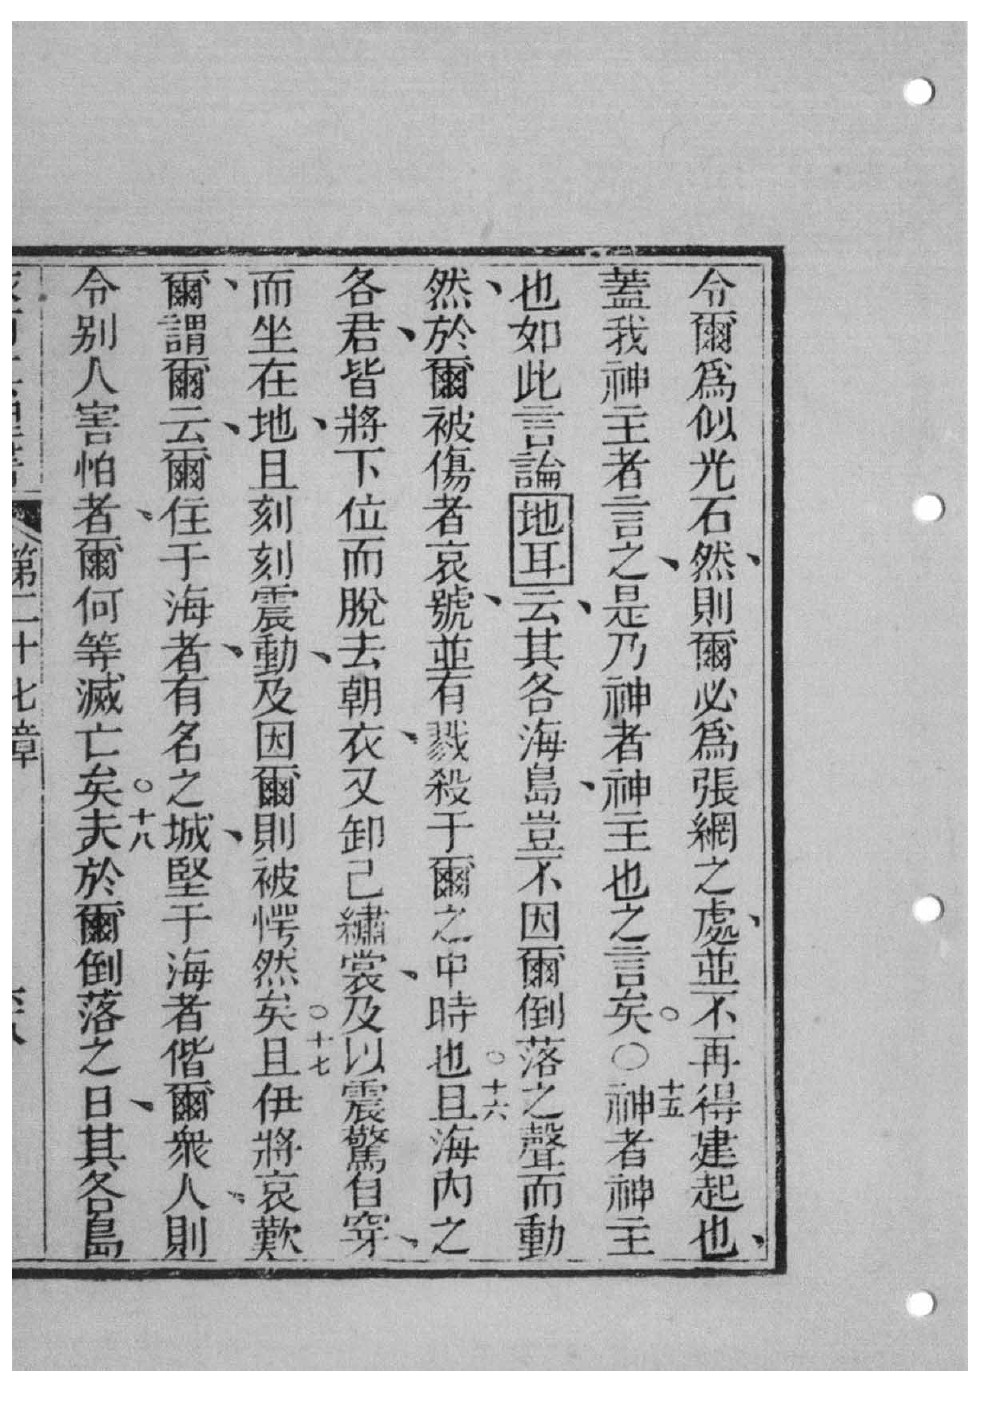 令爾爲似光石然、則爾必爲張網之處、並不再得建起也、
蓋我神主者言之、是乃神者神主也之言矣。○十五神者神主
也如此言論地耳、云其各海島、豈不因爾倒落之聲而動
然、於爾被傷者哀號、並有戮殺于爾之中時也。十六且海內之
各君、皆將下位而脫去朝衣、又卸己繡裳、及以震驚自穿、
而坐在地、且刻刻震動、及因爾則被愕然矣。十七且伊將哀歎
爾、謂爾云、爾住于海者、有名之城、堅于海者、偕爾衆人、則
令別人害怕者、爾何等滅亡矣。十八夫於爾倒落之日、其各島
第二十七章